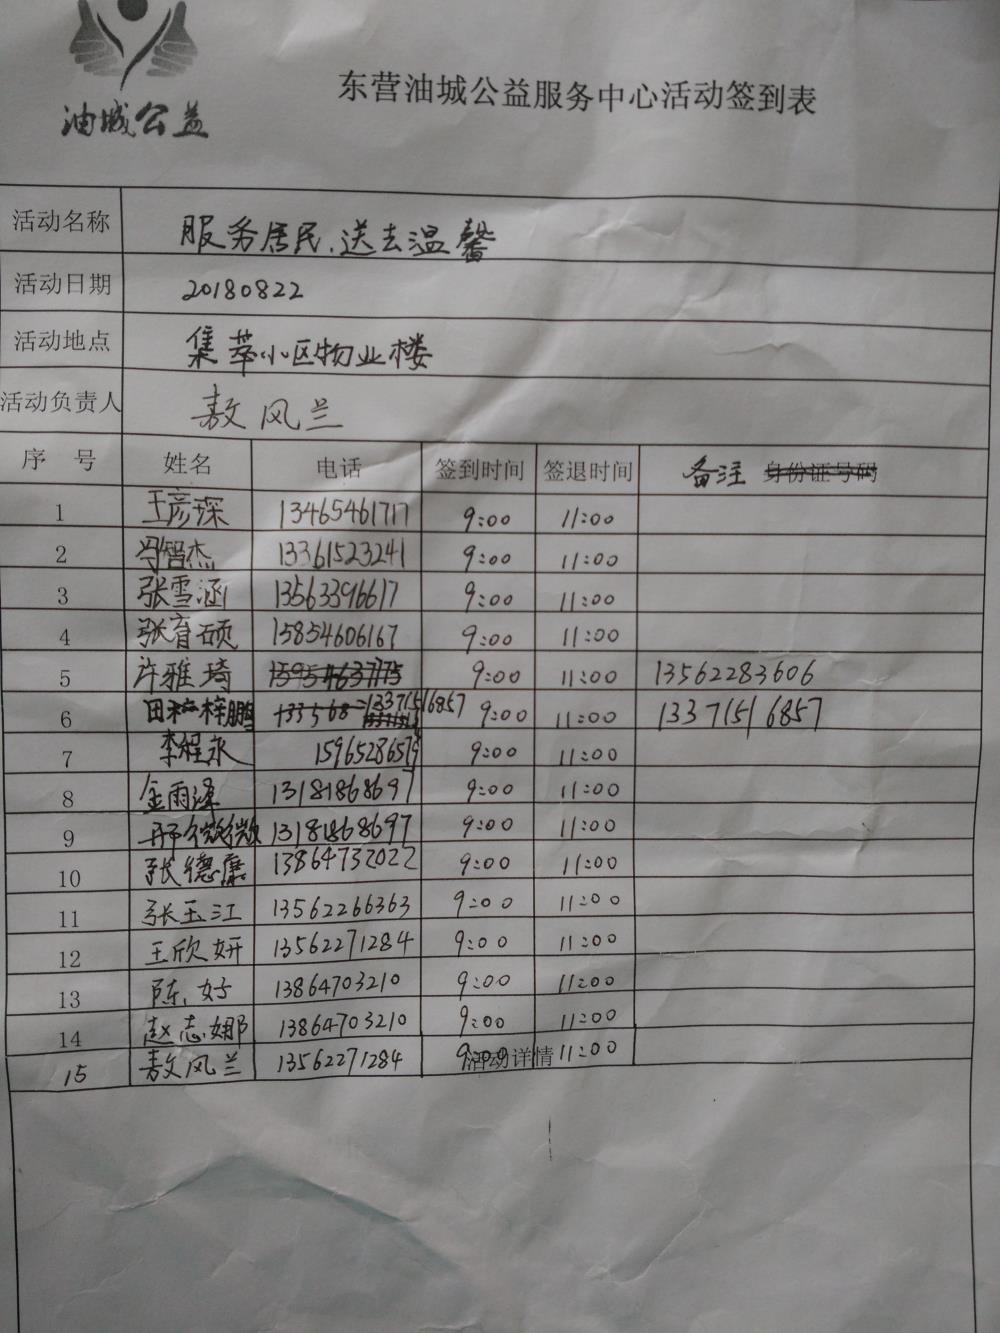 油城公益
东营油城公益服务中心活动签到表
活动名称 服务居民、送去温馨
活动日期 20180822
活动地点 集萃小区物业楼
活动负责人 敖风兰
序 号 姓名 电话 签到时间 签退时间 备注 身份证号码
1 王彦琛 13465461717 9:00 11:00
2 冯智杰 13361523241 9:00 11:00
3 张雪涵 13563396617 9:00 11:00
4 张育硕 15854606167 9:00 11:00
5 许雅琦 13954637175 9:00 11:00 13562283606
6 田梓鹏 13371516857 9:00 11:00 13371516857
7 李程永 15965286579 9:00 11:00
8 金雨泽 13181868697 9:00 11:00
9 邢微微 13181868697 9:00 11:00
10 张德廉 13864732022 9:00 11:00
11 张玉江 13562266363 9:00 11:00
12 王欣妍 13562271284 9:00 11:00
13 陈好 13864703210 9:00 11:00
14 赵志娜 13864703210 9:00 11:00
15 敖风兰 13562271284 9:00 11:00
活动详情